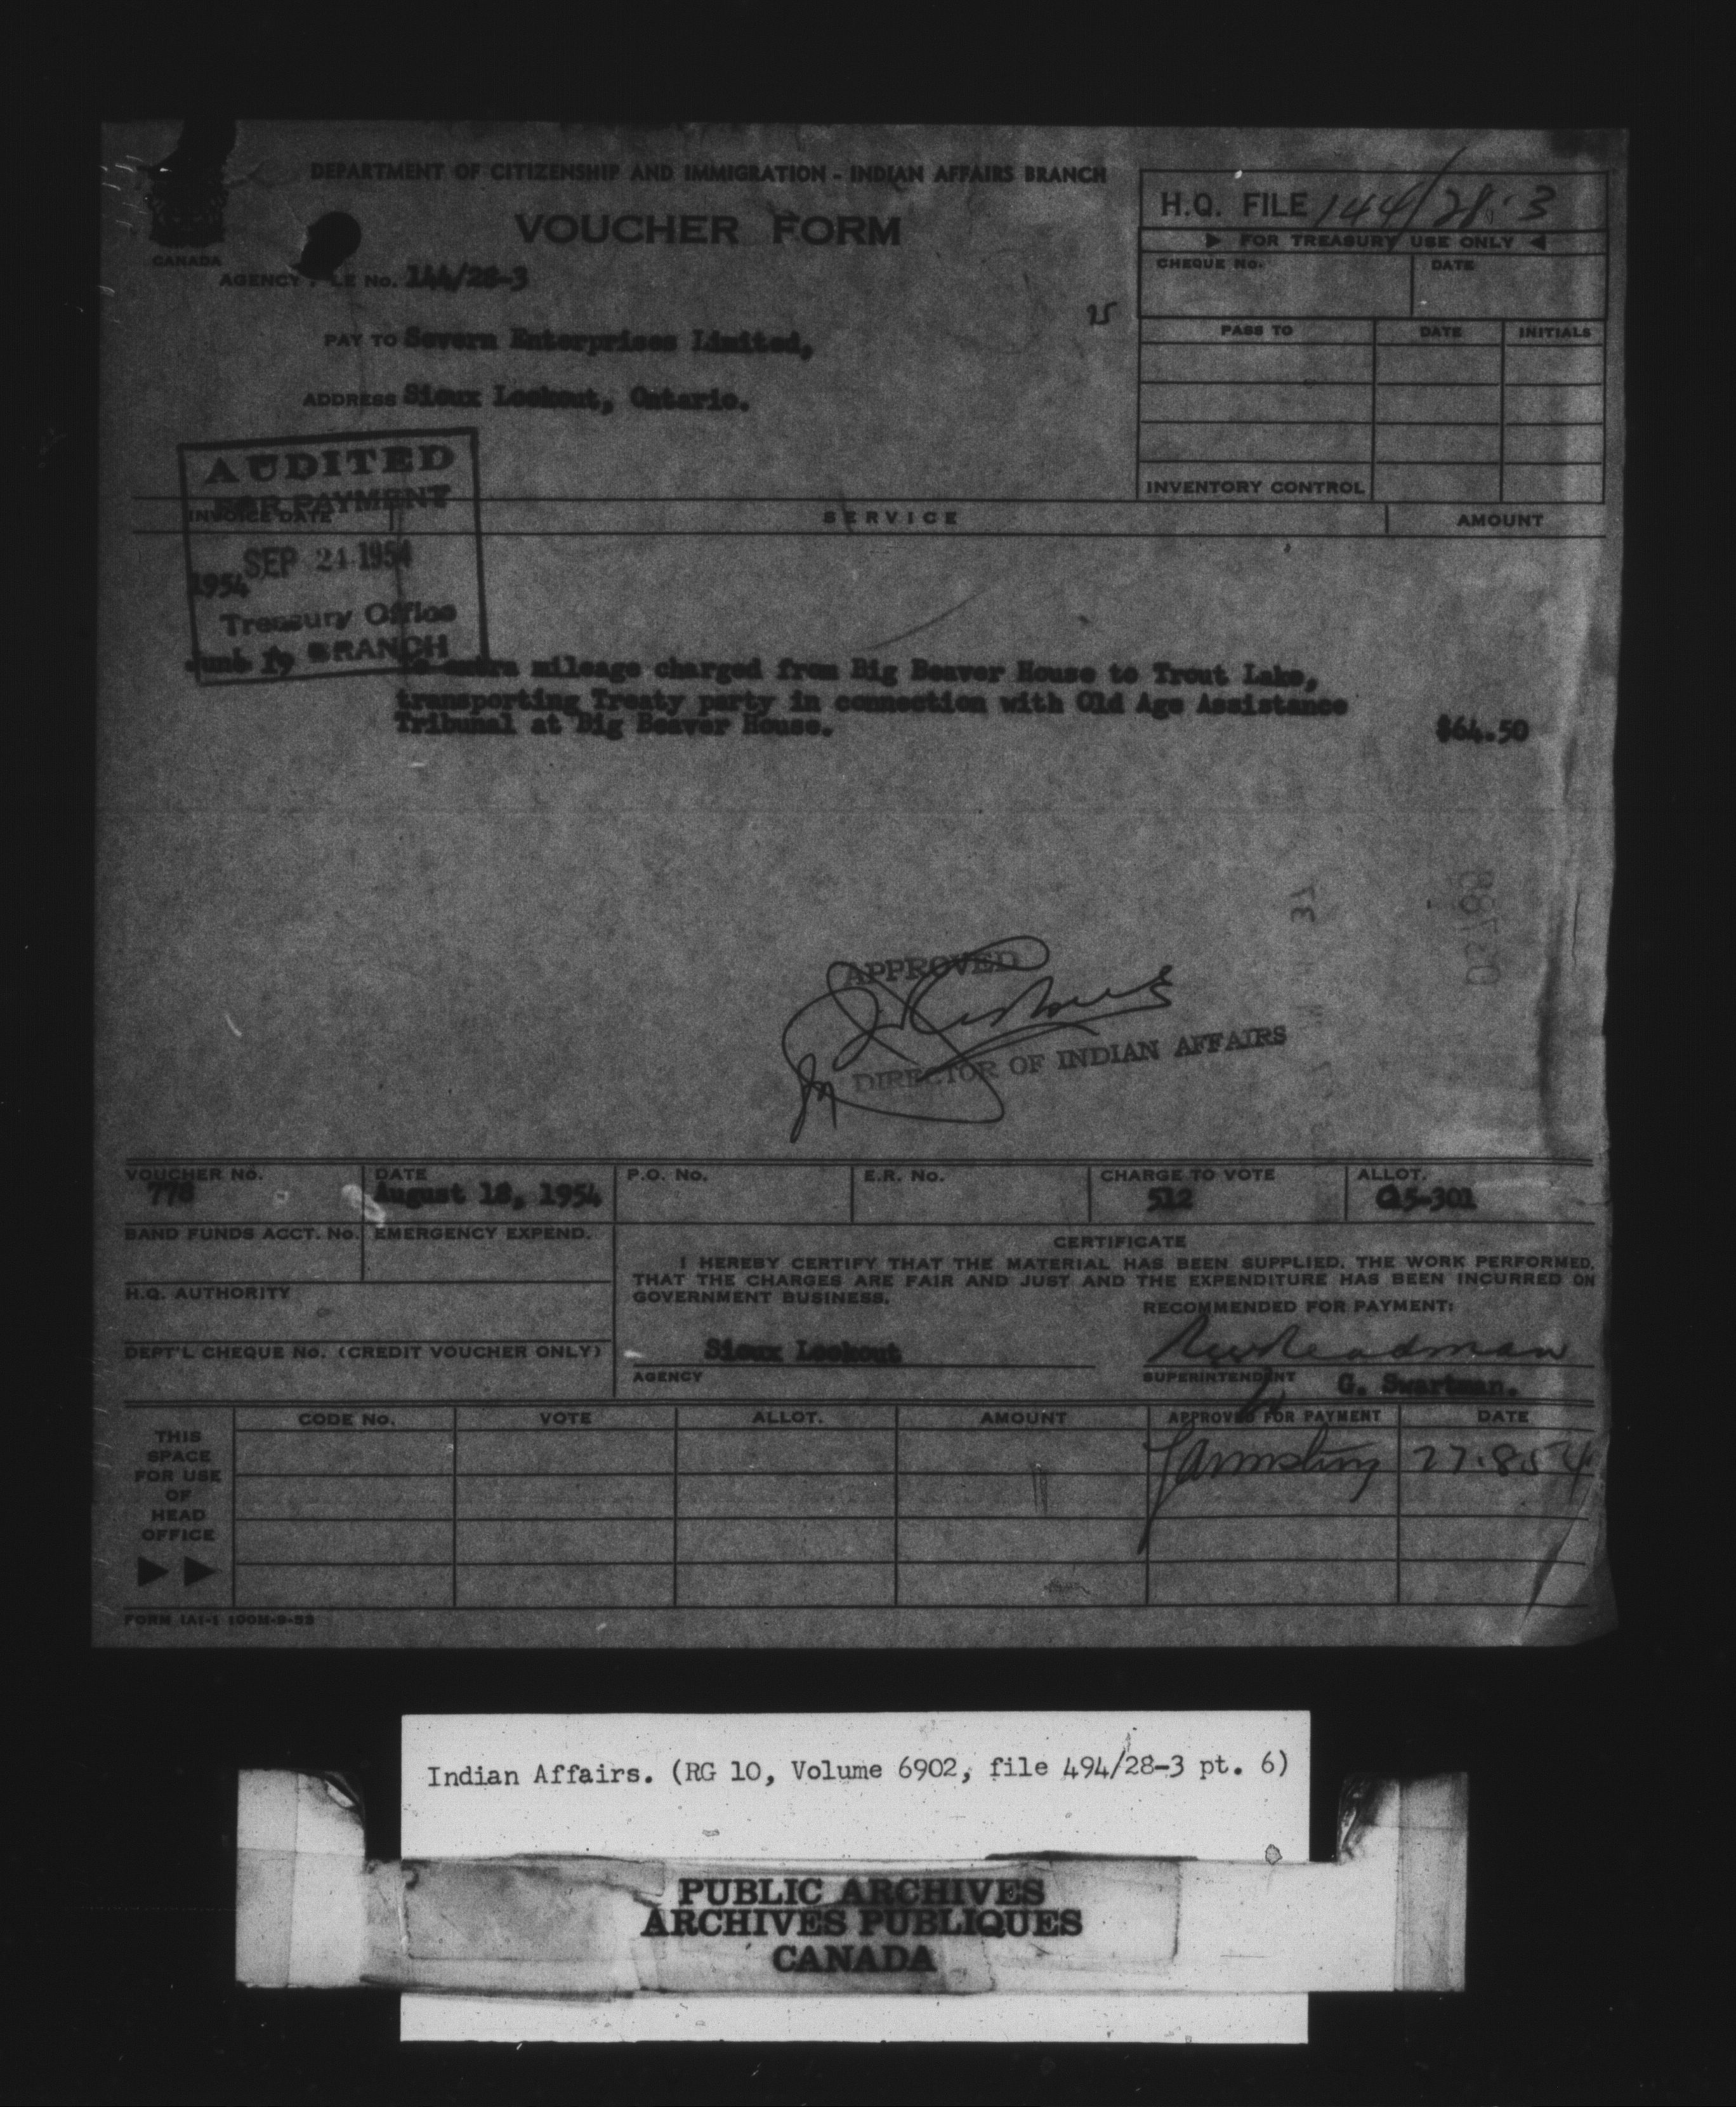 DEPARTMENT OF CITIZENSHIP AND IMMIGRATION - INDIAN AFFAIRS BRANCH
VOUCHER FORM
CANADA
H.Q. FILE 144/28-3
FOR TREASURY USE ONLY
CHEQUE No. DATE
AGENCY LE No. 144/28-3
25
PASS TO DATE INITIALS
PAY TO Severn Enterprises Limited,
ADDRESS Sioux Lookout, Ontario.
INVENTORY CONTROL
AUDITED
FOR PAYMENT
SEP 24 1954
Treasury Office
BRANCH
INVOICE DATE SERVICE AMOUNT
1954
June 19 To extra mileage charged from Big Beaver House to Trout Lake,
transporting Treaty party in connection with Old Age Assistance
Tribunal at Big Beaver House. $64.50
APPROVED
DIRECTOR OF INDIAN AFFAIRS
VOUCHER No. DATE P.O. No. E.R. No. CHARGE TO VOTE ALLOT.
778 August 18, 1954 512 Q15-301
BAND FUNDS ACCT. No. EMERGENCY EXPEND.
CERTIFICATE
I HEREBY CERTIFY THAT THE MATERIAL HAS BEEN SUPPLIED, THE WORK PERFORMED,
THAT THE CHARGES ARE FAIR AND JUST AND THE EXPENDITURE HAS BEEN INCURRED ON
GOVERNMENT BUSINESS.
H.Q. AUTHORITY
RECOMMENDED FOR PAYMENT:
DEPT'L CHEQUE No. (CREDIT VOUCHER ONLY)
Sioux Lookout
AGENCY
SUPERINTENDENT G. Swartman.
THIS SPACE FOR USE OF HEAD OFFICE
CODE No. VOTE ALLOT. AMOUNT APPROVED FOR PAYMENT DATE
27.8.54
FORM IA1-1 100M-9-53
Indian Affairs. (RG 10, Volume 6902, file 494/28-3 pt. 6)
PUBLIC ARCHIVES
ARCHIVES PUBLIQUES
CANADA